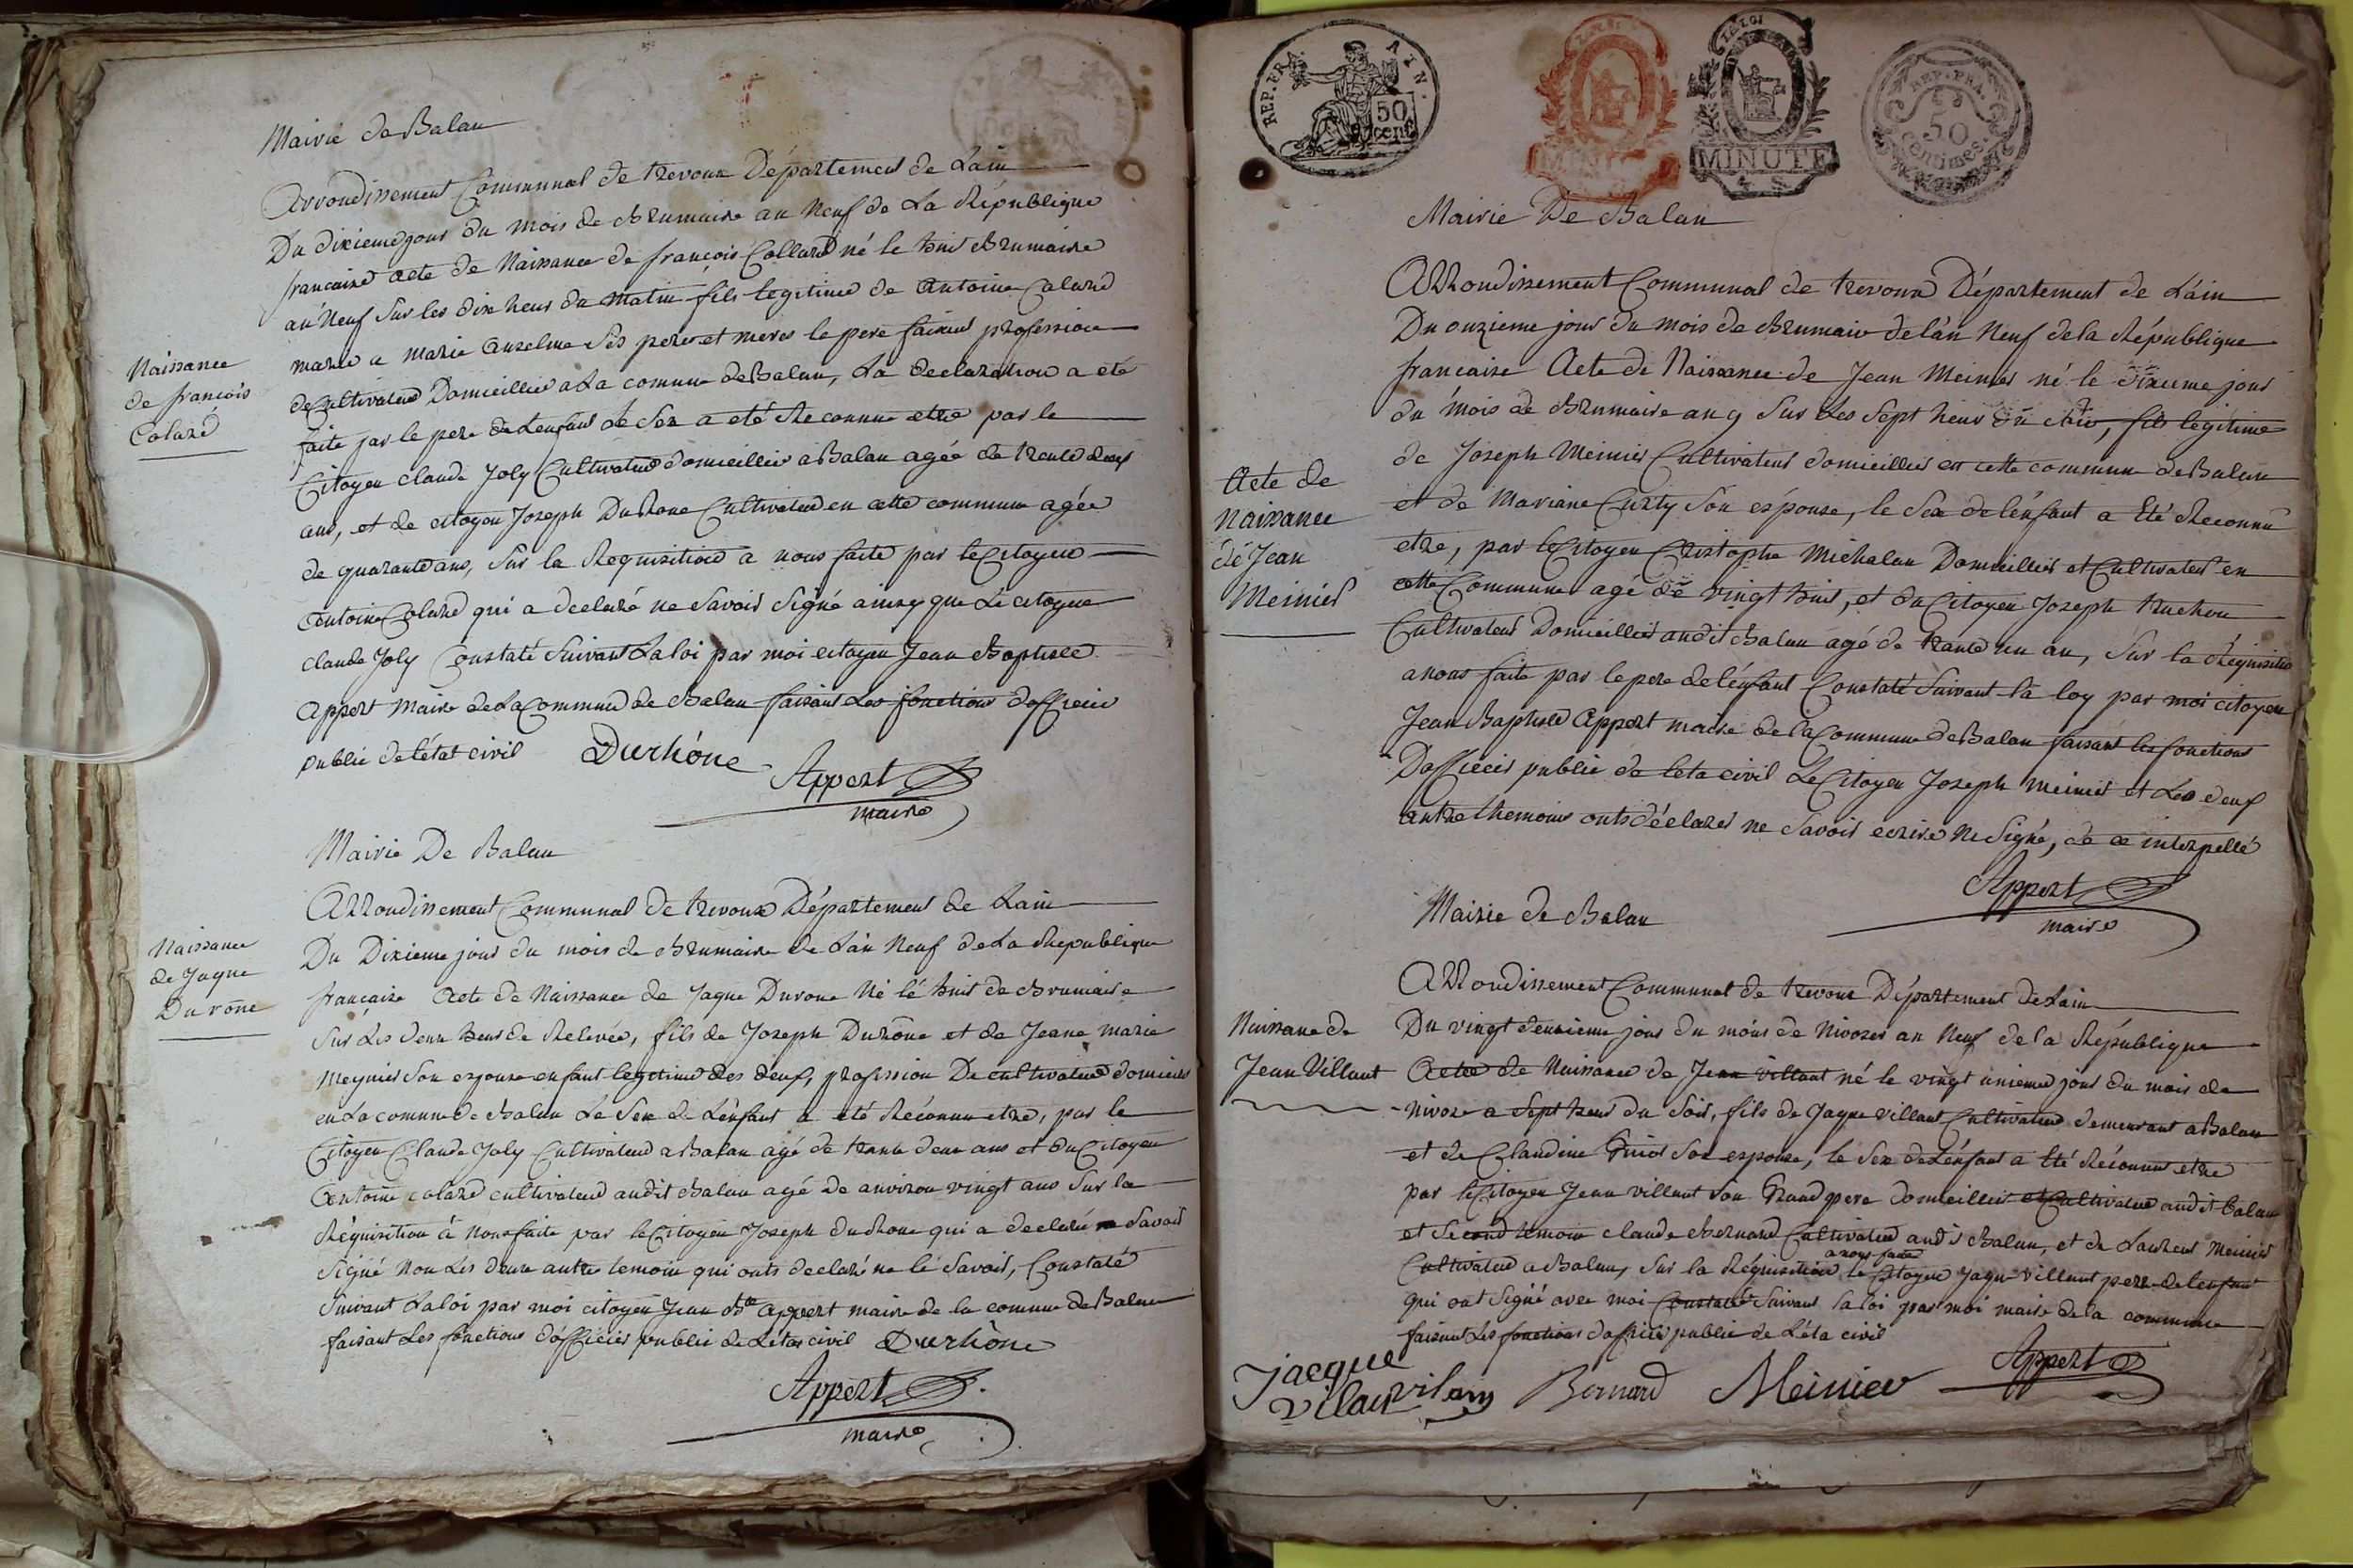 Mairie de Balan
Arrondissement Communal de trevoux Département de Lain
Du dixieme jour du mois de Brumaire an Neuf de La République
francaise acte de Naissance de françois Collard né le huit Brumaire
an Neuf Sur les dix heur du matin fils legitime de Antoine Calard
marié a Marie Anselme Ses peres et meres le pere faisant profession
de Cultivateur Domicillié a La comune de Balan, La declaration a été
faite par le pere de Lenfant le Sex a eté Reconnu etre par le
Citoyen claude Joly Cultivateur domicillié a Balan agée de trente deux
ans, et de citoyen Joseph DuRone Cultivateur en cette commune agée
de quarante ans, Sur la Requisition a nous faite par le Citoyen
Antoine Colard qui a declaré ne Savoir Signé ainsy que Le citoyen
claude Joly Constaté Suivant La loi par moi citoyen Jean Baptiste
Appert Maire de La Commune de Balan faisant Les fonctions dofficier
public de létat civil Durhóne
Appert
maire
Naissance
de françois
Colard
Mairie De Balan
Arrondissement Communal de trevoux Département de Lain
Du Dixieme jour du mois de Brumaire de Lan Neuf de La Republique
française Acte de Naissance de Jaque Durone Né lé huit de Brumaire
Sur Les deux heur de Relevée, fils de Joseph Durône et de Jeane marie
Meynier Son espouse enfant legitime des deux, profession De cultivateur domicilié
en La comune de Balan Le Sex de Lenfant a été Réconnu etre, par le
Citoyen Claude Joly Cultivateur a Balan agé de trante deux ans et du Citoyen
Antoine colard cultivateur audit Balan agé de anviron vingt ans Sur la
Réquisition à Nous faite par le Citoyen Joseph duRone qui a declaré Savoir
Signé Non Les deux autre temoin qui onts declaré ne lé Savoir, Constaté
Suivant La loi par moi citoyen Jean Bte Appert maire de la comune de Balan
faisant Les fonctions d'officier public de Létat civil Durhône
Appert
maire
Naissance
de Jaque
Durône
REP. FRA. 50 cent
MINUTE
MINUTE
REP. FRA. 50 Centimes
Mairie De Balan
Arrondissement Communal de trevoux Département de Lain
Du onzieme jour du mois de Brumaire de lan Neuf de la République
francaise Acte de Naissance de Jean Meinier né le dixieme jour
du mois de Brumaire an 9 Sur Les Sept heur du Soir, fils légitime
de Joseph Meinier Cultivateur domicillié en cette commune de Balan
et de Mariane Curty Son espouse, le Sex de lénfant a Eté Reconnu
etre, par le Citoyen Cristophe Michalan Domicillié et Cultivateur en
cette Commune agé de vingt huit, et du Citoyen Joseph truchon
Cultivateur Domicillié audit Balan agé de trante un an, Sur la Réquisition
a nous faite par le pere de lénfant Constaté Suivant la loy par moi citoyen
Jean Baptiste Appert maire de la Commune de Balan faisant les fonctions
Dofficier public de leta civil Le Citoyen Joseph Meinier et Les deux
autre themoins onts déclarés ne Savoir ecrire Ne Signé, de ce interpellé
Appert
maire
Acte de
Naissance
de Jean
Meinier
Mairie de Balan
Arrondissement Communal de trevoux Département de Lain
Du vingt deuxieme jour du mois de Nivoses an Neuf de la République
Acte de Naissance de Jean villant né le vingt unieme jour du mois de
Nivose a Sept heur du Soir, fils de Jaque villant Cultivateur demeurant a Balan
et de Claudine Son espouse, le Sex de Lénfant a Eté Réconnu etre
par le Citoyen Jean villant Son Grand pere domicillié et Cultivateur audit Balan
et Second temoin claude Bernard Cultivateur audit Balan, et de Laurent Meinier
Cultivateur a Balan, Sur la Réquisition a nous faite le Citoyen Jaque villant pere de lenfant
qui ont Signé avec moi Constaté Suivant la loi par moi maire de la commune
faisant Les fonctions dofficier public de Léta civil
Jacque
vilan vilan Bernard Meinier Appert
Naissance de
Jean Villant